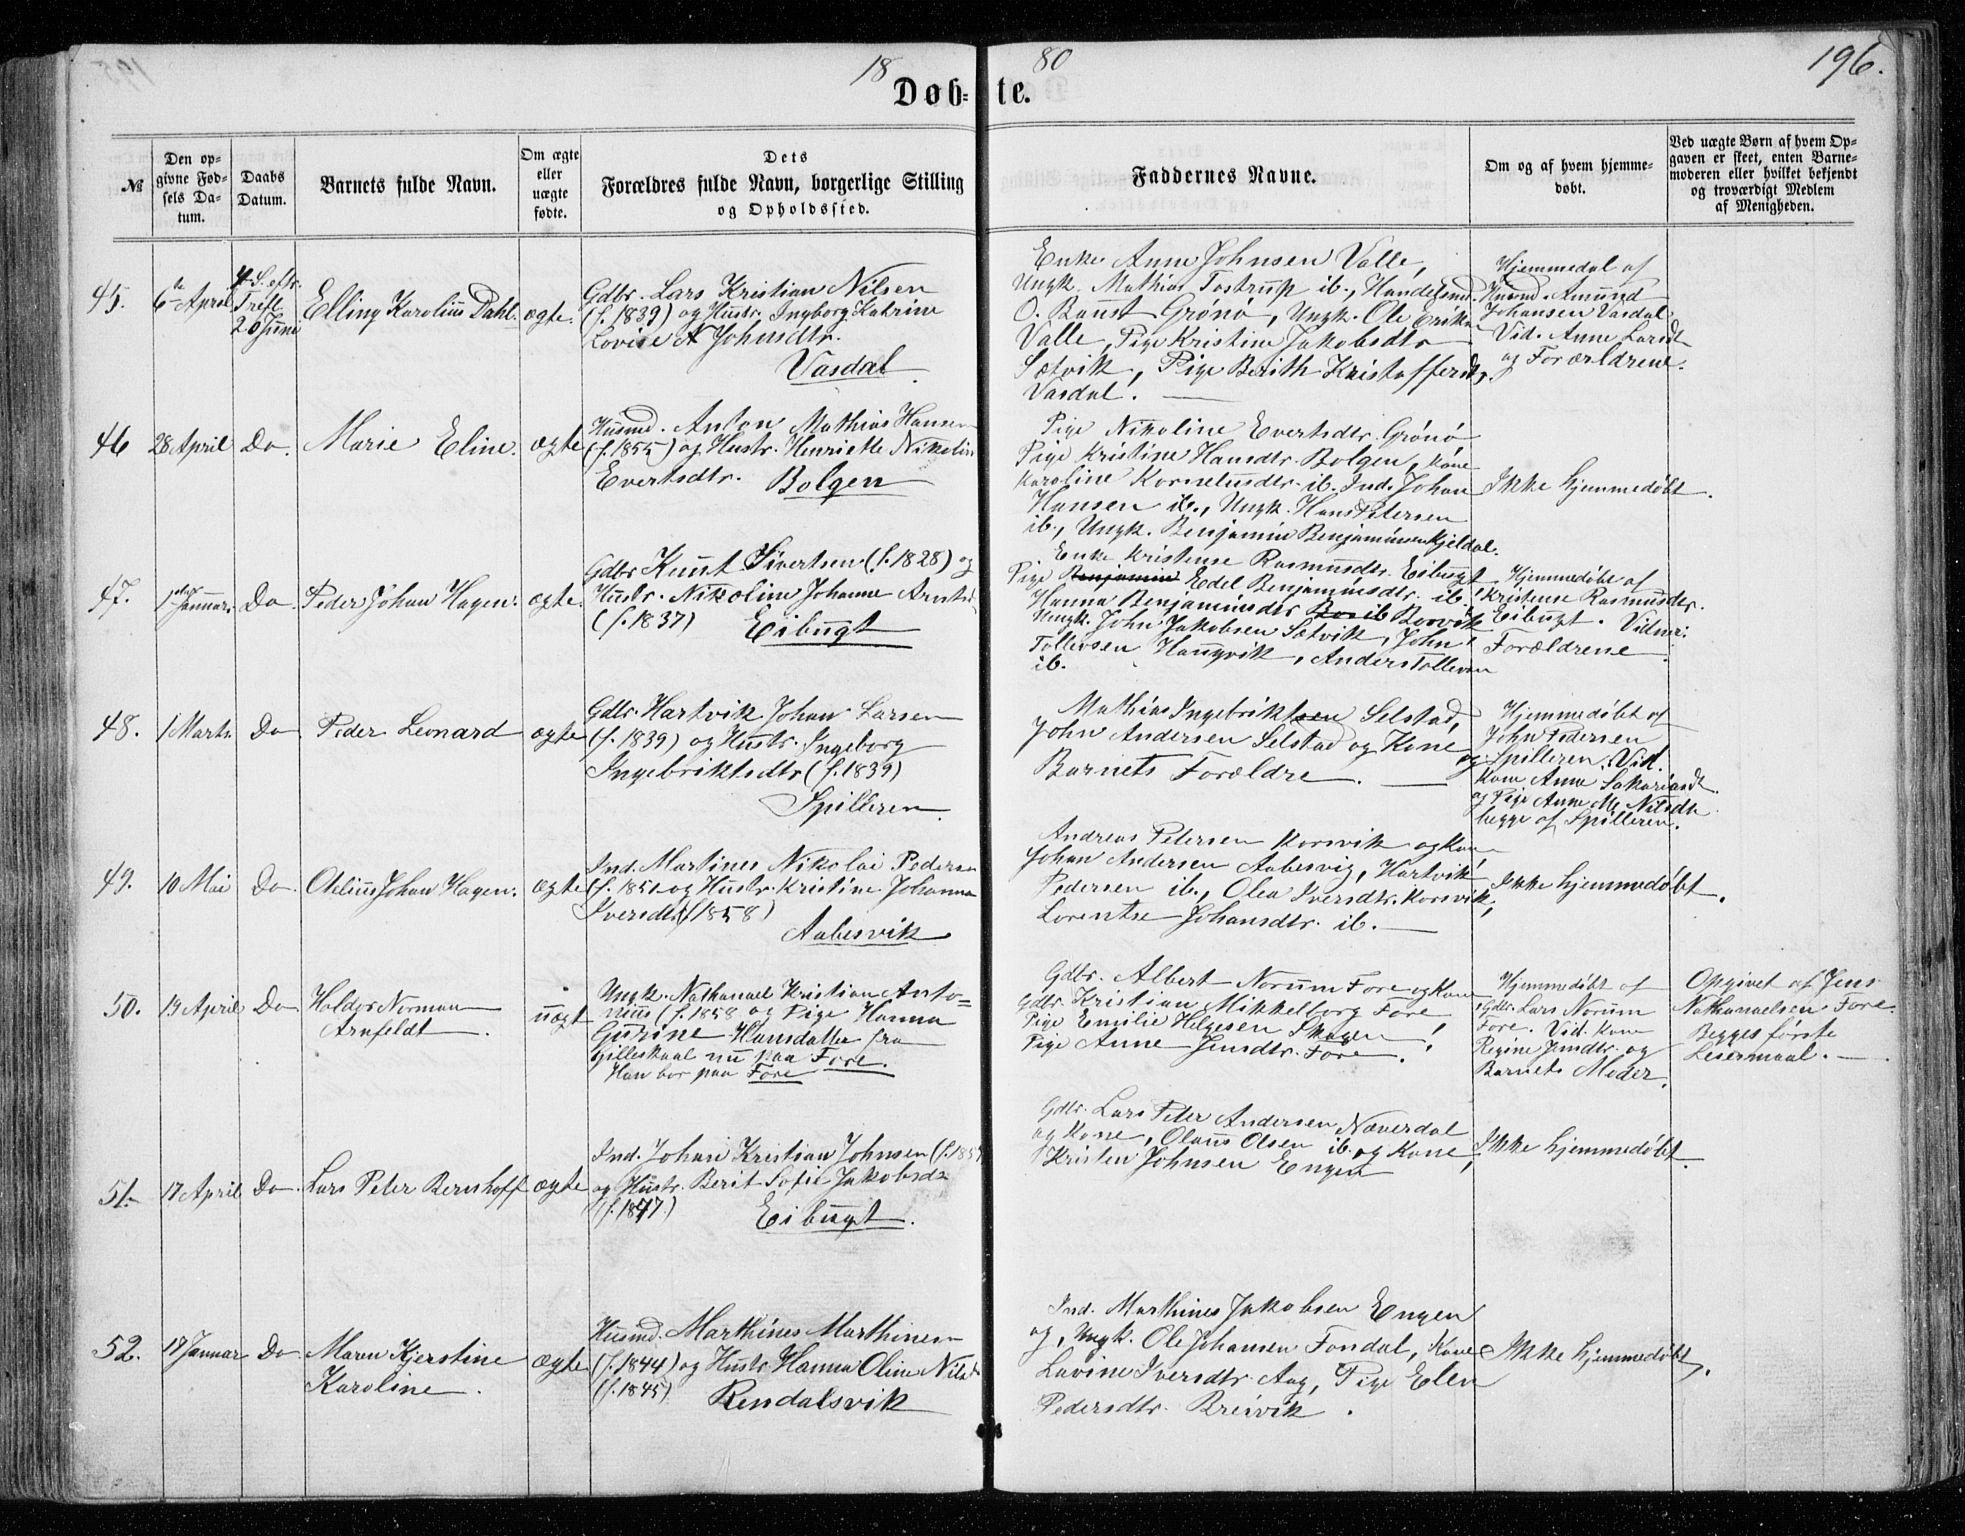 18 80
196.
Døb=te.
№
Den op-
givne Fød-
sels Da-
tum.
Daabs
Datum.
Barnets fulde Navn.
Om ægte
eller
uægte
fødte.
Dets
Forældres fulde Navn, borgerlige Stilling
og Opholdssted.
Faddernes Navne.
Om og af hvem hjemme-
døbt.
Ved uægte Børn af hvem Op-
gaven er skeet, enten Barne-
moderen eller hvilket bekjendt
og troværdigt Medlem
af Menigheden.
45.
6te April
4 S. eftr.
Trefl.
20 Juni
Elling Karolius Dahl.
ægte.
Gdbr. Lars Kristian Nilsen
(f. 1839) og Hustr. Ingborg Katrine
Lovise A Johnsdtr.
Vasdal
Enke Anne Johnsen Valle,
Ungk. Mathias Tostrup ib., Handelsmd.
O. Baust Grønø, Ungk. Ole Eriks.
Valle, Pige Kristine Jakobsdtr
Sætvik, Pige Berith Kristoffersdtr.
Vasdal.
Hjemmedøl af
Husmd. Amund
Johansen Vasdal
Vid. Anne Larsdt
og Forældrene.
46
28 April
Do.
Marie Eline.
ægte
Husmd. Anton Mathias Hansen
(f. 1855) og Hustr. Henriette Nikolin
Evertsdtr. Bolgen
Pige Nikoline Evertsdtr. Grønø,
Pige Kristine Hansdtr. Bolgen, Kone
Karoline Kornelusdtr. ib. Ind. Johan
Hansen ib., Ungk. Hans Petersen
ib., Ungk. Benjamin Benjaminsen Kjeldal.
Ikke hjemmedøbt.
47.
1ste Januar.
Do
Peder Johan Hagen.
ægte.
Gdbr Knut Sivertsen (f. 1828) og
Hustr. Nikoline Johanna Arntsd.
(f. 1837) Eibugt
Enke Kristense Rasmusdtr. Eibugt
Pige Benjamin Edel Benjaminsdtr. ib.,
Hanna Benjaminsdtr Bo ib Borvik
Ungk. John Jakobsen Sætvik, John
Tollevsen Haugvik, Anders Tollevsen
ib.
Hjemmedøbt af
Kristense Rasmusdtr.
Eibugt. Vidner:
Forældrene
48.
1 Marts.
Do
Peder Leonard
ægte
Gdbr. Hartvik Johan Larsen
(f. 1839) og Hustr. Ingeborg
Ingebriktsdtr (f. 1839)
Spilderen.
Mathias Ingebriktsen Selstad,
John Andersen Selstad og Kone og
Barnets Forældre.
Hjemmedøbt af
John Pedersen
Spilderen. Vid.
Kone Anne Sakariasdt.
og Pige Anne M. Nilsdtr
begge af Spilderen.
49.
10 Mai
Do
Otelius Johan Hagen.
ægte
Ind. Martines Nikolai Pedersen
(f. 1851 og Hustr. Kristine Johanna
Iversdtr. (1858)
Aabesvik
Andreas Petersen Korsvik og Kone,
Johan Andersen Aabesvig, Hartvik
Pedersen ib., Olea Iversdtr. Korsvik,
Lorentse Johansdtr. ib.
Ikke hjemmedøbt.
50.
19 April
Do
Holder Norman
Arnfeldt.
uægt
Ungk. Nathanael Kristian Anto=
nius (f. 1858 og Pige Hanna
Gurine Hansdatter fra
Gilleskaal nu paa Fore.
Han bor paa Fore
Gdbr. Albert Norum Fore og Kone
Gdbr. Kristian Mikkelborg Fore,
Pige Emilie Helgesen Skagen,
Pige Anne Jensdtr. Fore.
Hjemmedøbt af
Gdbr. Lars Norum
Fore. Vid. Kone
Regine Jensdtr. og
Barnets Moder.
Opgivet af Jens
Nathanaelsen Fore.
Begges første
Leiermaal.
51.
17 April
Do
Lars Peter Bernhoff
ægte
Ind. Johan Kristian Johnsen (f. 185
og Hustr. Berit Sofie Jakobsd.
(f. 1847.) Eibugt.
Gdbr. Lars Peter Andersen Næverdal
og Kone, Olaus Olsen ib. og Kone,
Kristen Johnsen Engen
Ikke hjemmedøbt.
52.
17 Januar
Do
Maren Kjerstine
Karoline.
ægte
Husmd. Marthines Marthinesen
(f. 1844) og Hustr Hanna Oline Nilsd.
(f. 1845) Rendalsvik
Ind. Marthines Jakobsen Engen
og, Ungk. Ole Johansen Fondal, Kone
Lavine Iversdtr. Aag, Pige Elen
Pedersdtr. Breivik.
Ikke hjemmedøbt.